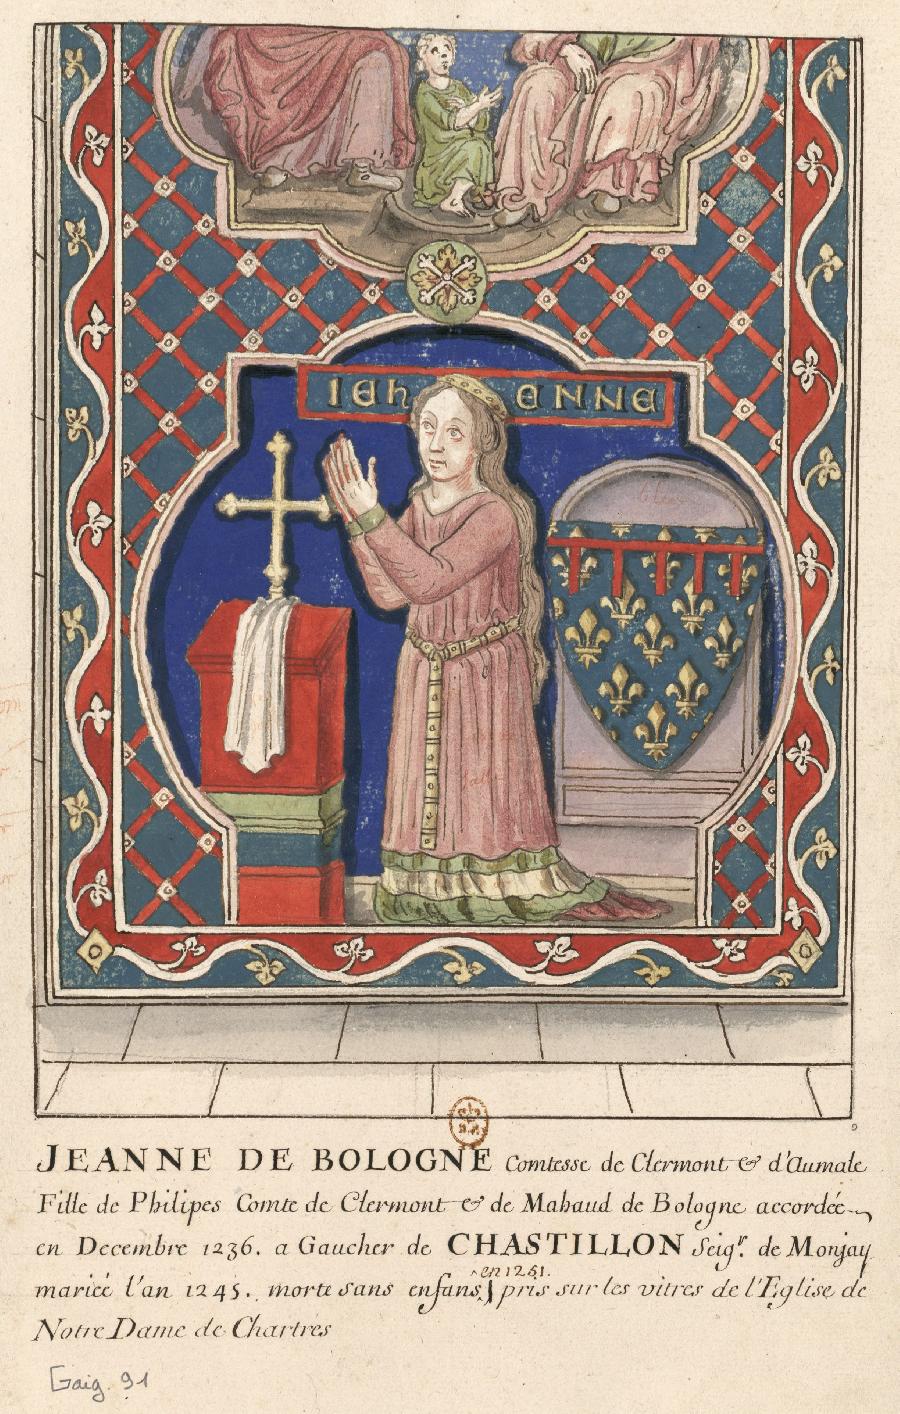 IEHENNE
JEANNE DE BOLOGNE Comtesse de Clermont & d'Aumale
Fille de Philipes Comte de Clermont & de Mahaud de Bologne accordée
en Decembre 1236. a Gaucher de CHASTILLON Seigr. de Monjay
en 1251.
mariée l'an 1245. morte sans enfans, pris sur les vitres de l'Eglise de
Notre Dame de Chartres
Gaig. 91